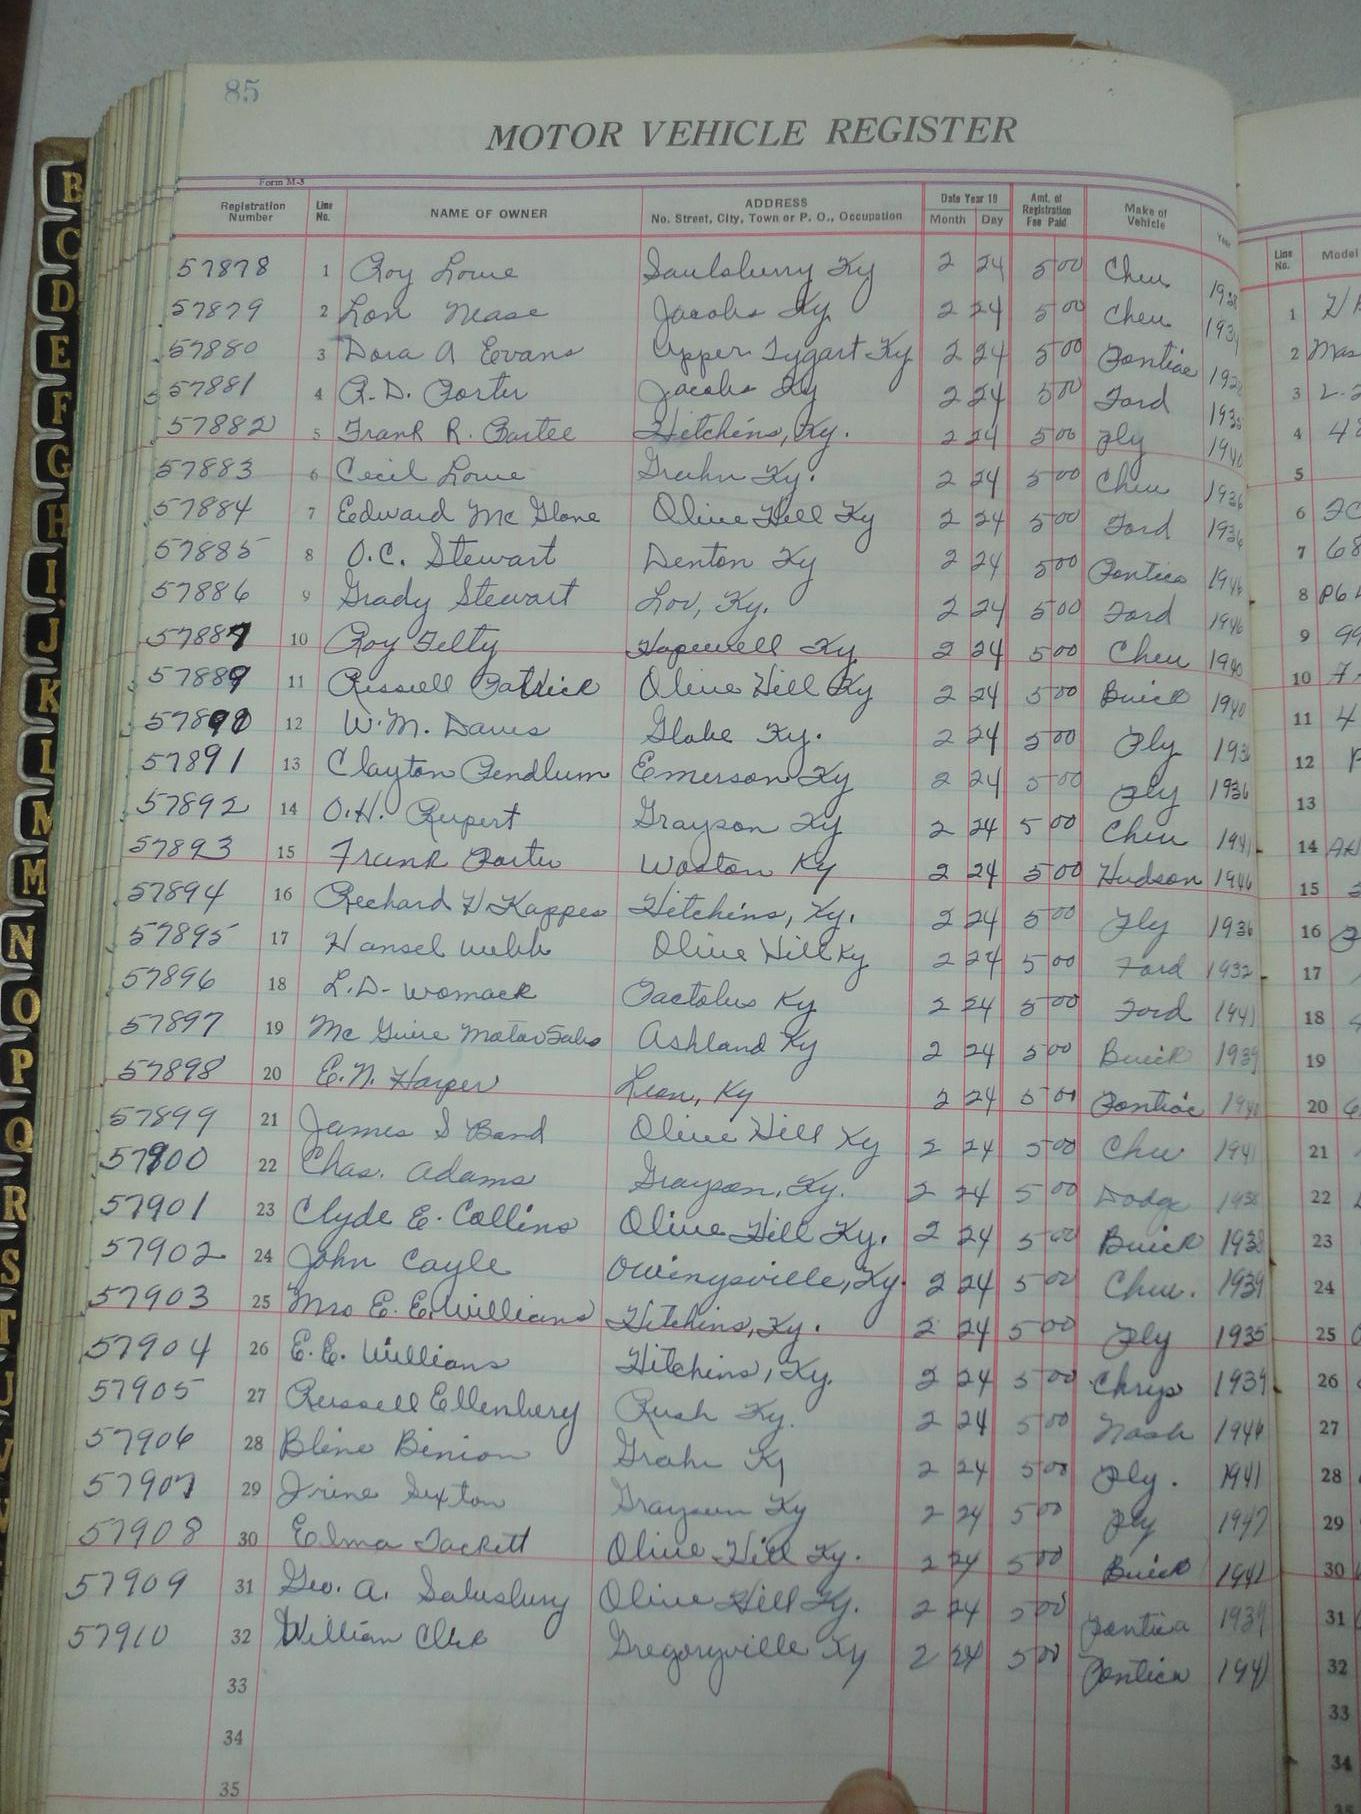 85
MOTOR VEHICLE REGISTER
Form M-5
Registration Number Line No. NAME OF OWNER ADDRESS No. Street, City, Town or P. O., Occupation Date Year 19 Month Day Amt. of Registration Fee Paid Make of Vehicle Year Line No. Model
57878 1 Roy Lowe Saulsburry Ky 2 24 5 00 Chev 1 H
57879 2 Lon Mase Jacobs Ky 2 24 5 00 Chev 2 Mas
57880 3 Dora A Evans Upper Tygart Ky 2 24 5 00 Pontiac 3 L-2
57881 4 R.D. Porter Jacobs Ky 2 24 5 00 Ford 4 48
57882 5 Frank R. Partee Hitchins, Ky. 2 24 5 00 Ply 1940 5
57883 6 Cecil Lowe Grahn Ky. 2 24 5 00 Chev 1936 6
57884 7 Edward Mc Glone Olive Hill Ky 2 24 5 00 Ford 1936 7 68
57885 8 O.C. Stewart Denton Ky 2 24 5 00 Pontica 1946 8 P6
57886 9 Grady Stewart Lov, Ky. 2 24 5 00 Ford 1946 9 99
57887 10 Roy Felty Hopewell Ky 2 24 5 00 Chev 1940 10 7
57889 11 Russell Patrick Olive Hill Ky 2 24 5 00 Buick 1940 11 4
57890 12 W.M. Davis Globe Ky. 2 24 5 00 Ply 1936 12 P
57891 13 Clayton Pendlum Emerson Ky 2 24 5 00 Ply 1936 13
57892 14 O.H. Rupert Grayson Ky 2 24 5 00 Chev 1941 14 AH
57893 15 Frank Porter Waston Ky 2 24 5 00 Hudson 1946 15
57894 16 Richard H Kappes Hitchins, Ky. 2 24 5 00 Ply 1936 16
57895 17 Hansel Webb Olive Hill Ky 2 24 5 00 Ford 1932 17
57896 18 L.D. Womack Pactolus Ky 2 24 5 00 Ford 1941 18
57897 19 Mc Guire Motor Sales Ashland Ky 2 24 5 00 Buick 1939 19
57898 20 E.N. Harper Leon, Ky 2 24 5 00 Pontiac 1940 20 6
57899 21 James S Bond Olive Hill Ky 2 24 5 00 Chev 1941 21
57900 22 Chas. Adams Grayson, Ky. 2 24 5 00 Dodge 1938 22
57901 23 Clyde E. Collins Olive Hill Ky. 2 24 5 00 Buick 1938 23
57902 24 John Cayle Owinysville, Ky. 2 24 5 00 Chev. 1939 24
57903 25 Mrs E. E. Williams Hitchins, Ky. 2 24 5 00 Ply 1935 25
57904 26 E.E. Williams Hitchins, Ky. 2 24 5 00 Chrys 1939 26
57905 27 Russell Ellenbery Rush Ky. 2 24 5 00 Nash 1946 27
57906 28 Bline Binion Grahn Ky 2 24 5 00 Ply. 1941 28
57907 29 Irine Sexton Grayson Ky 2 24 5 00 Ply 1947 29
57908 30 Elma Tackett Olive Hill Ky. 2 24 5 00 Buick 1941 30
57909 31 Geo. A. Salusbury Olive Hill Ky. 2 24 5 00 Pontica 1939 31
57910 32 William Clek Gregoryville Ky 2 24 5 00 Pontica 1941 32
33 33
34 34
35
B
C
D
E
F
G
H
I
J
K
L
M
M
N
O
P
Q
R
S
T
U
V